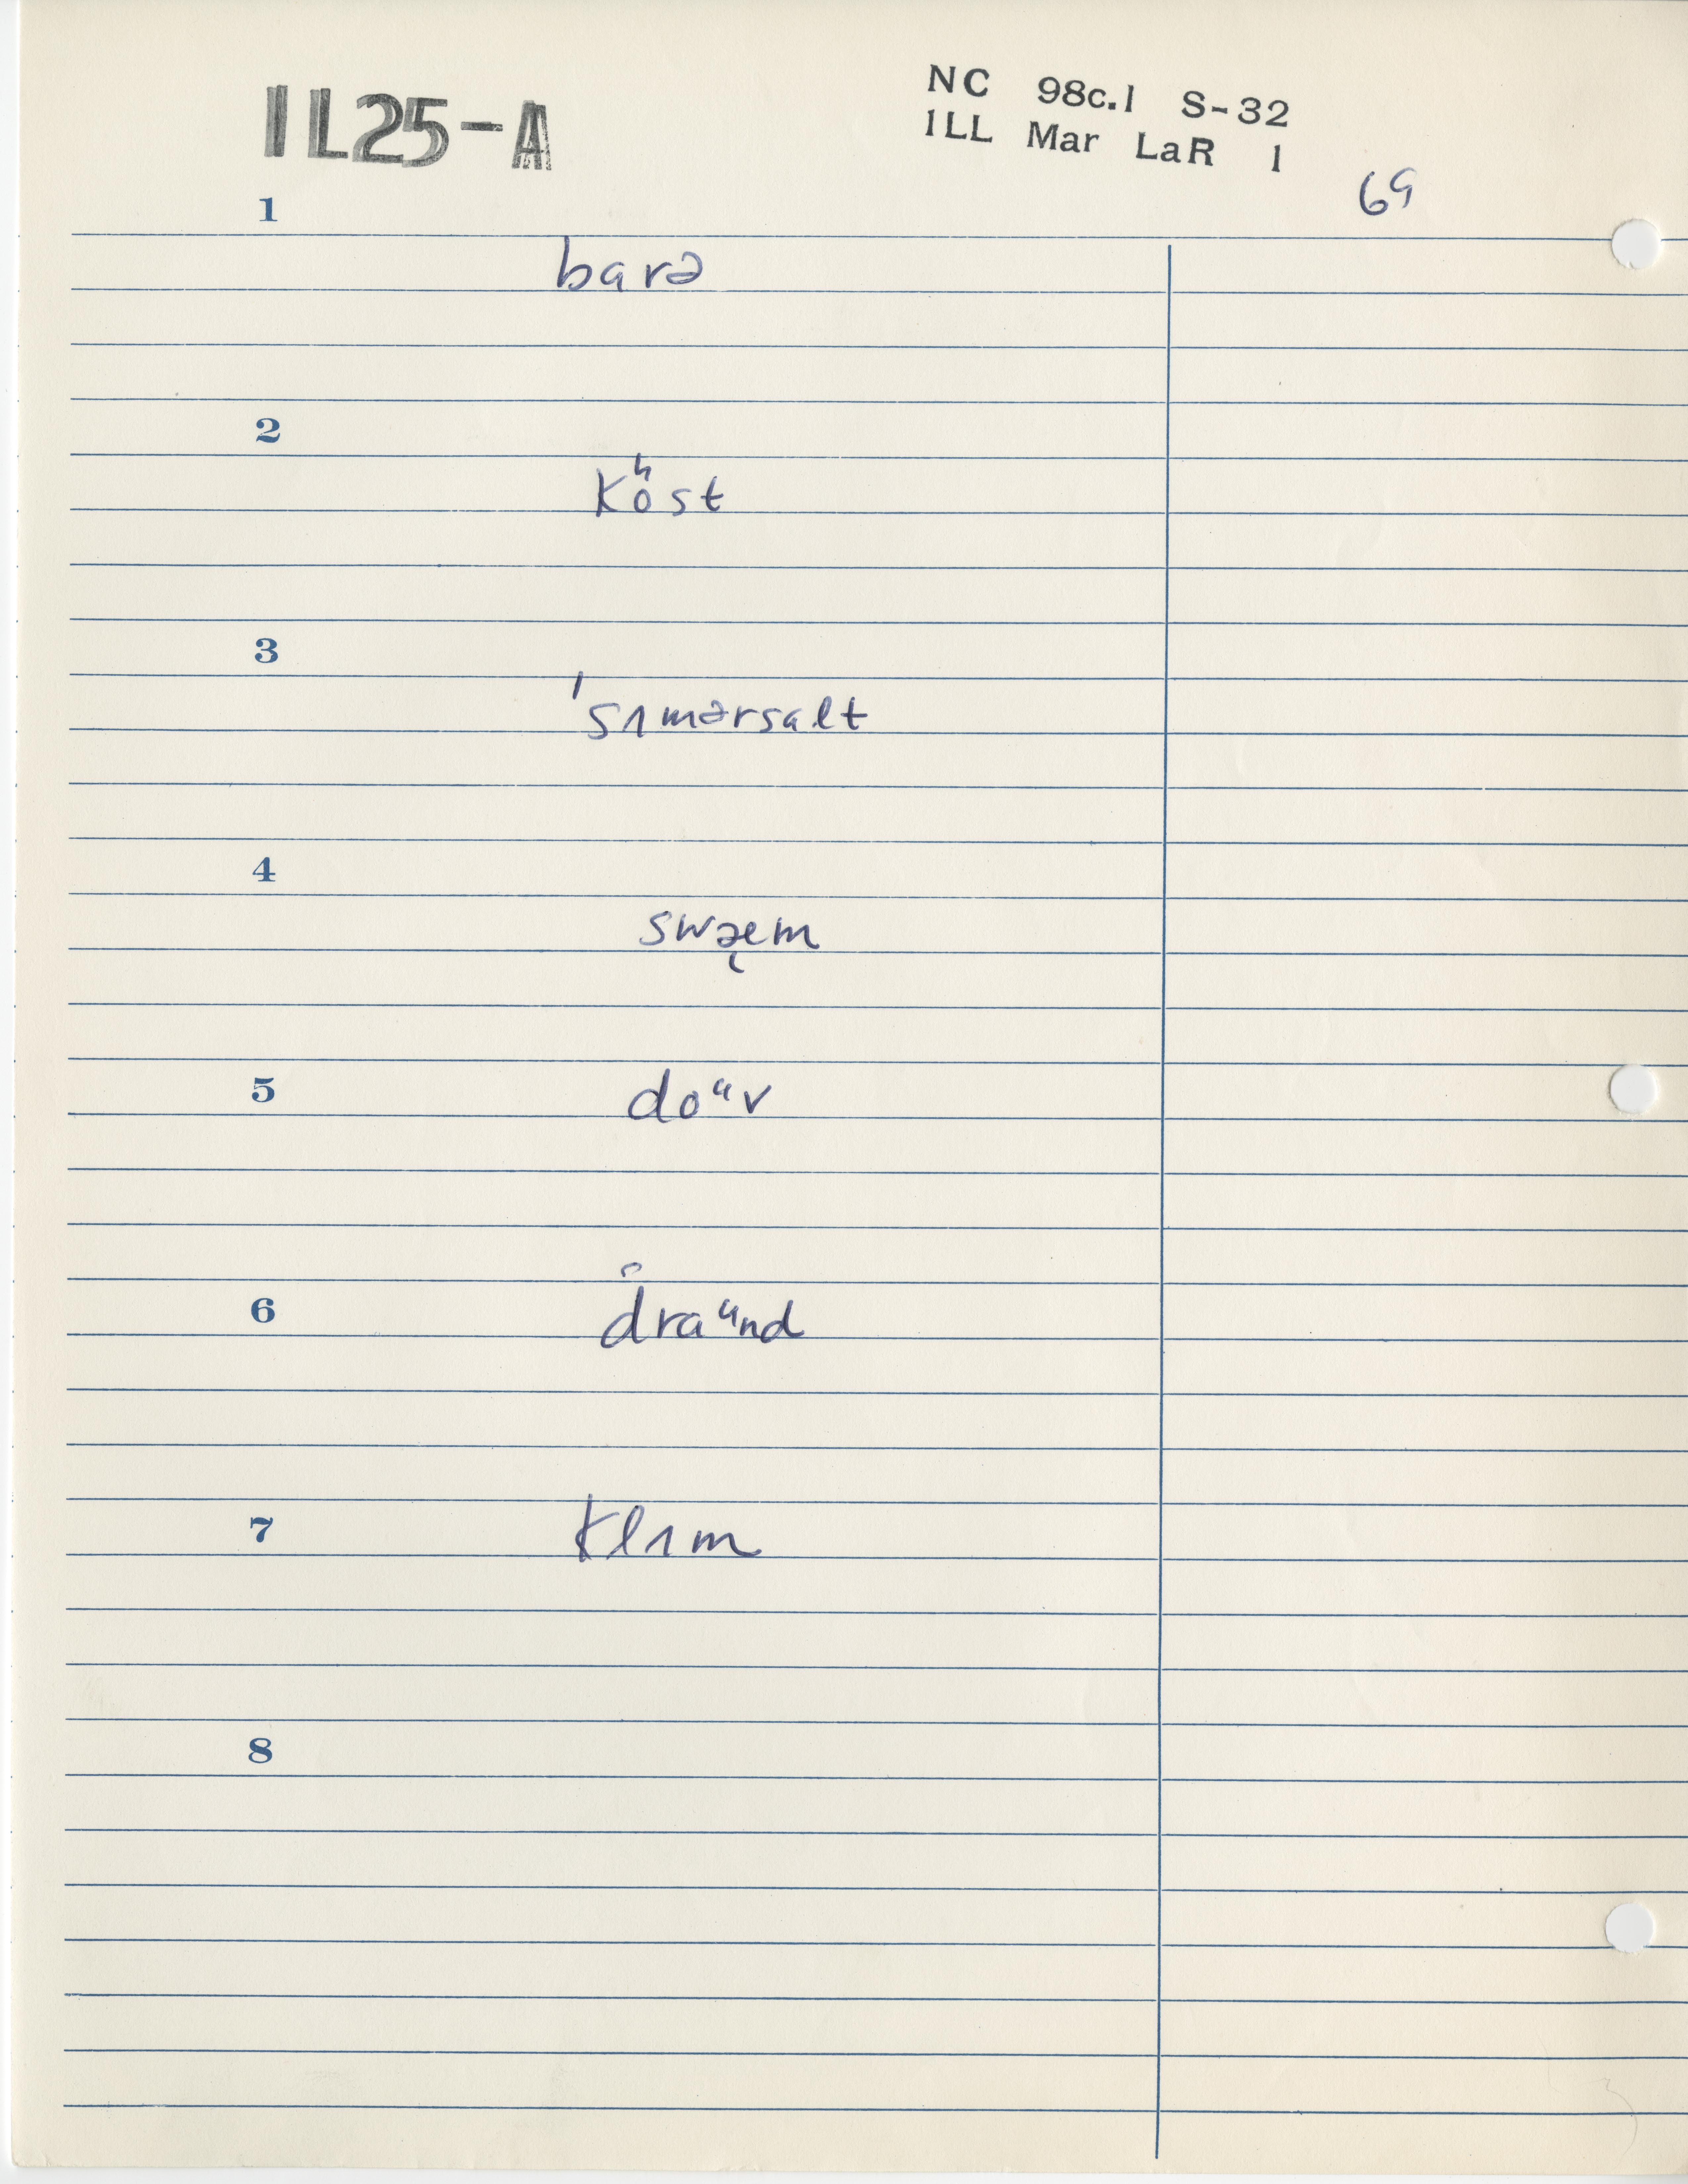 IL25-A
NC 98c.1 S-32
ILL Mar LaR 1
69
1
barə
2
kʰost
3
ˈsʌmərsalt
4
5
doᵘv
6
draᵘnd
7
klʌm
8